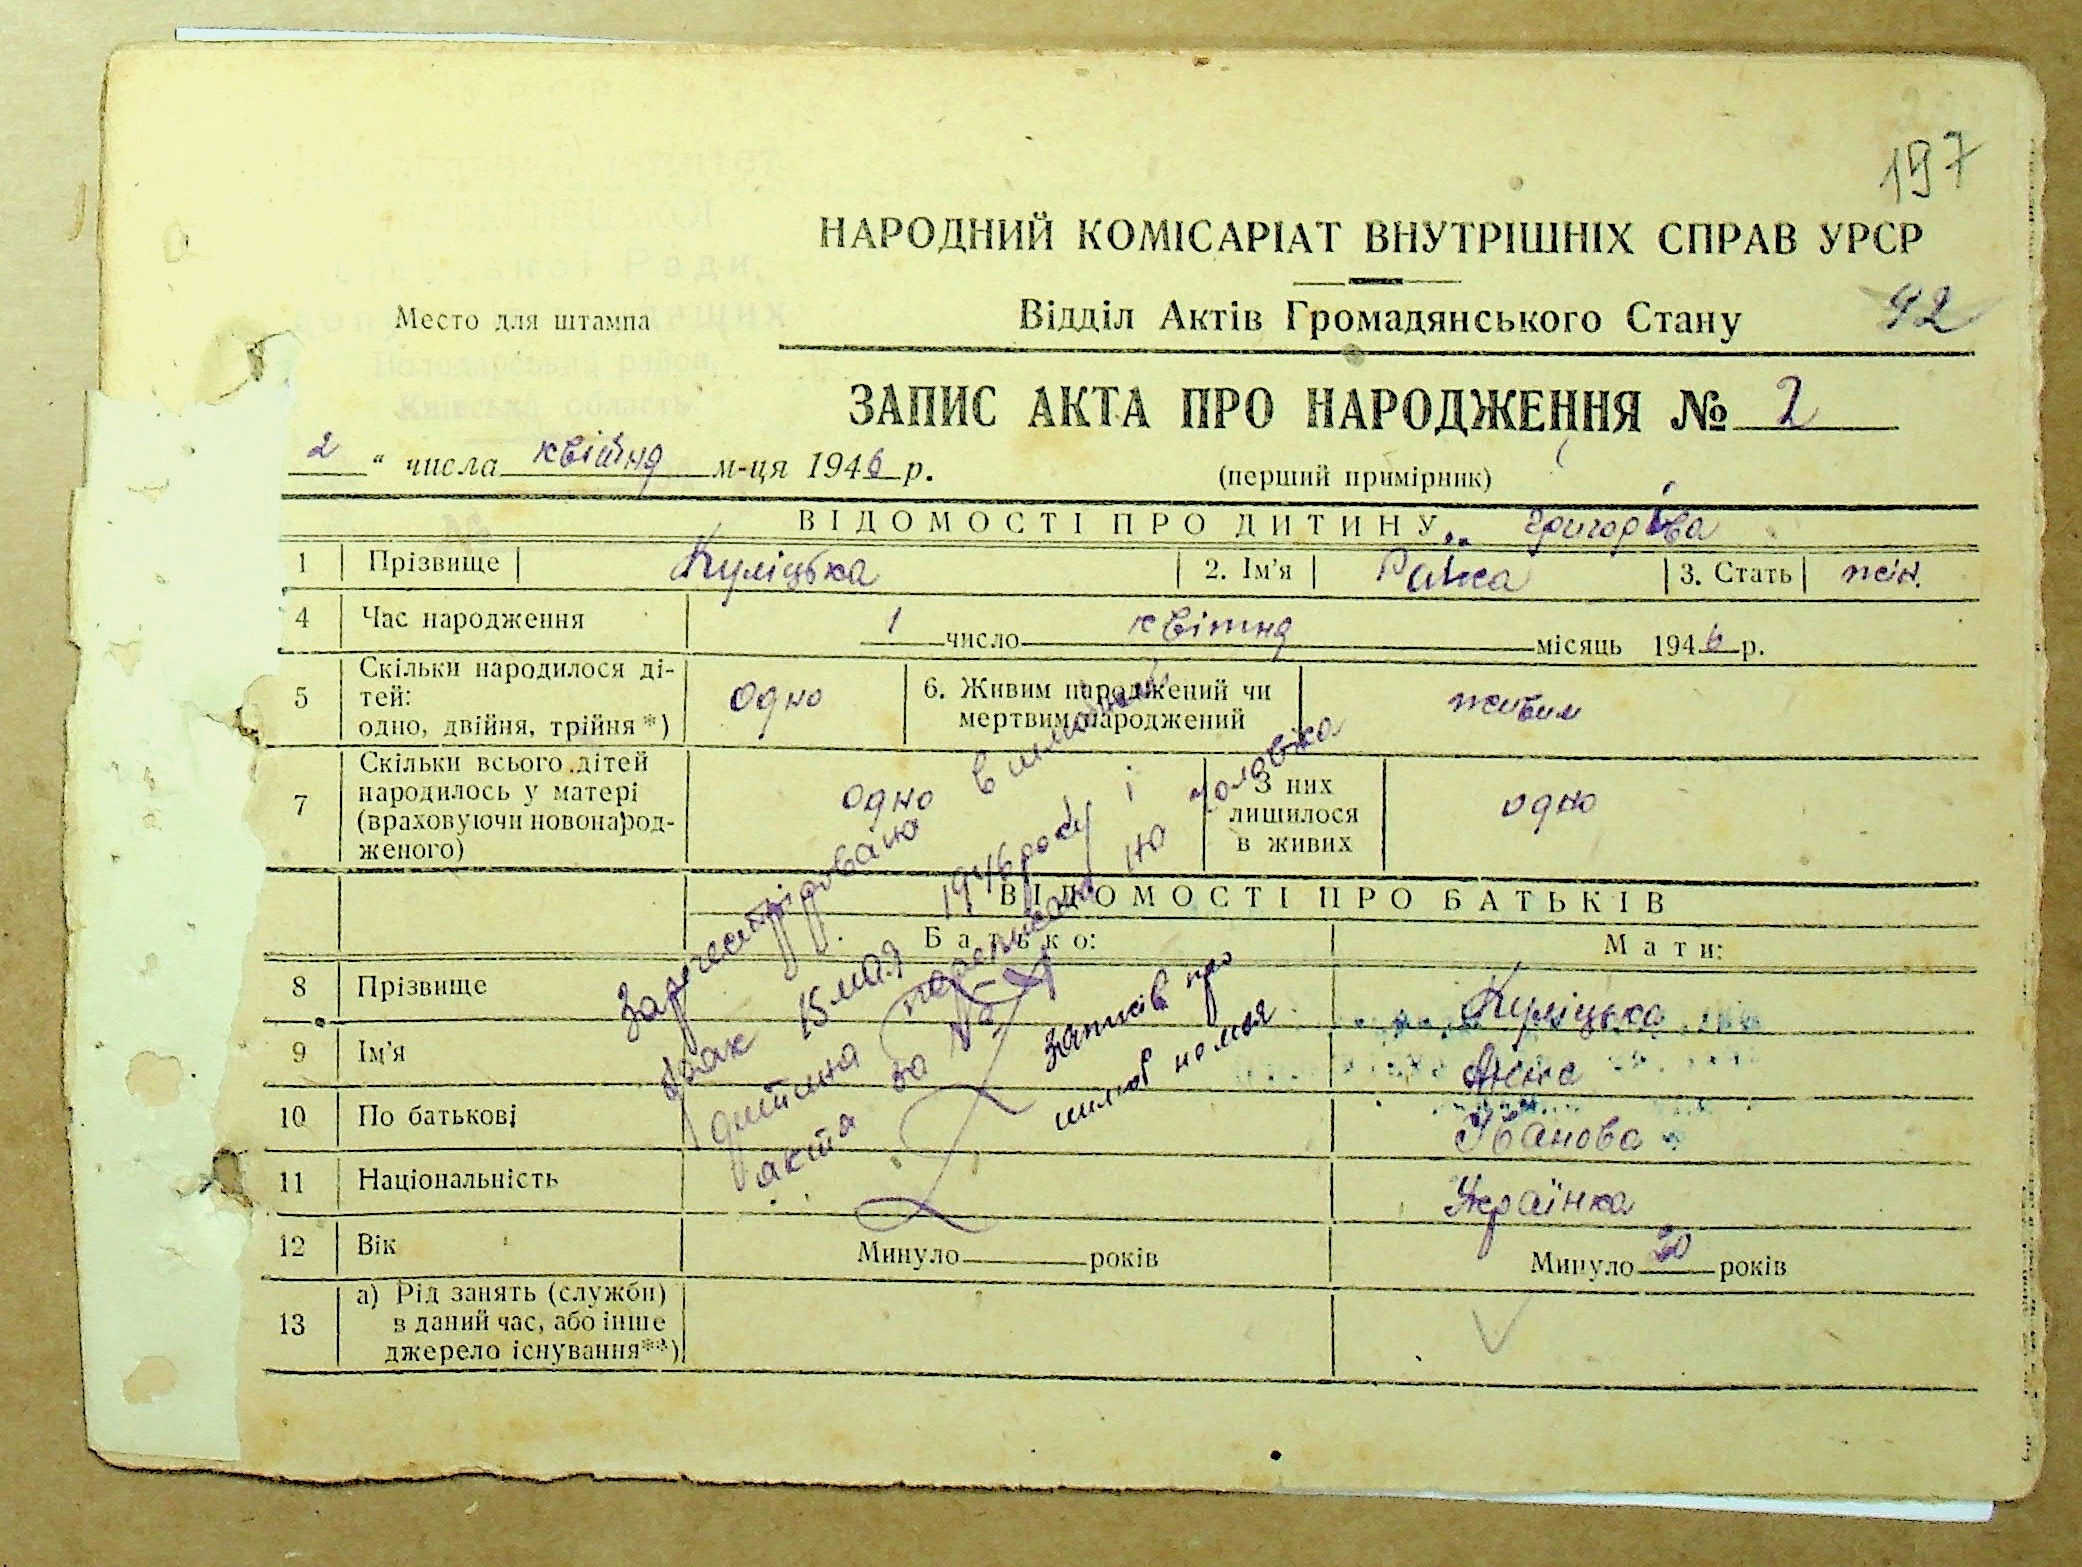 197
НАРОДНИЙ КОМІСАРІАТ ВНУТРІШНІХ СПРАВ УРСР
Место для штампа
Відділ Актів Громадянського Стану 42
ЗАПИС АКТА ПРО НАРОДЖЕННЯ № 2
2 " числа квітня м-ця 1946 р. (перший примірник)
ВІДОМОСТІ ПРО ДИТИНУ Григорівва
1 Прізвище Куліцька 2. Ім'я Раїса 3. Стать жін.
4 Час народження 1 число квітня місяць 1946 р.
5 Скільки народилося ді-
тей:
одно, двійня, трійня *) одно 6. Живим народжений чи
мертвим народжений живим
7 Скільки всього дітей
народилось у матері
(враховуючи новонарод-
женого) одно З них
лишилося
в живих одно
ВІДОМОСТІ ПРО БАТЬКІВ
Батько: Мати:
8 Прізвище Куліцька
9 Ім'я
10 По батькові Іванова
11 Національність Українка
12 Вік Минуло років Минуло 20 років
13 а) Рід занять (служби)
в даний час, або інше
джерело існування**)
Зареєстрідовано
брак 15 мая 1946 року і
дитина переписана на чоловіка
акта за № записів про